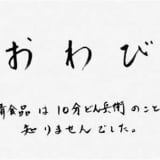 おわび
清食品は10分どん兵衛のこと
知りませんでした。